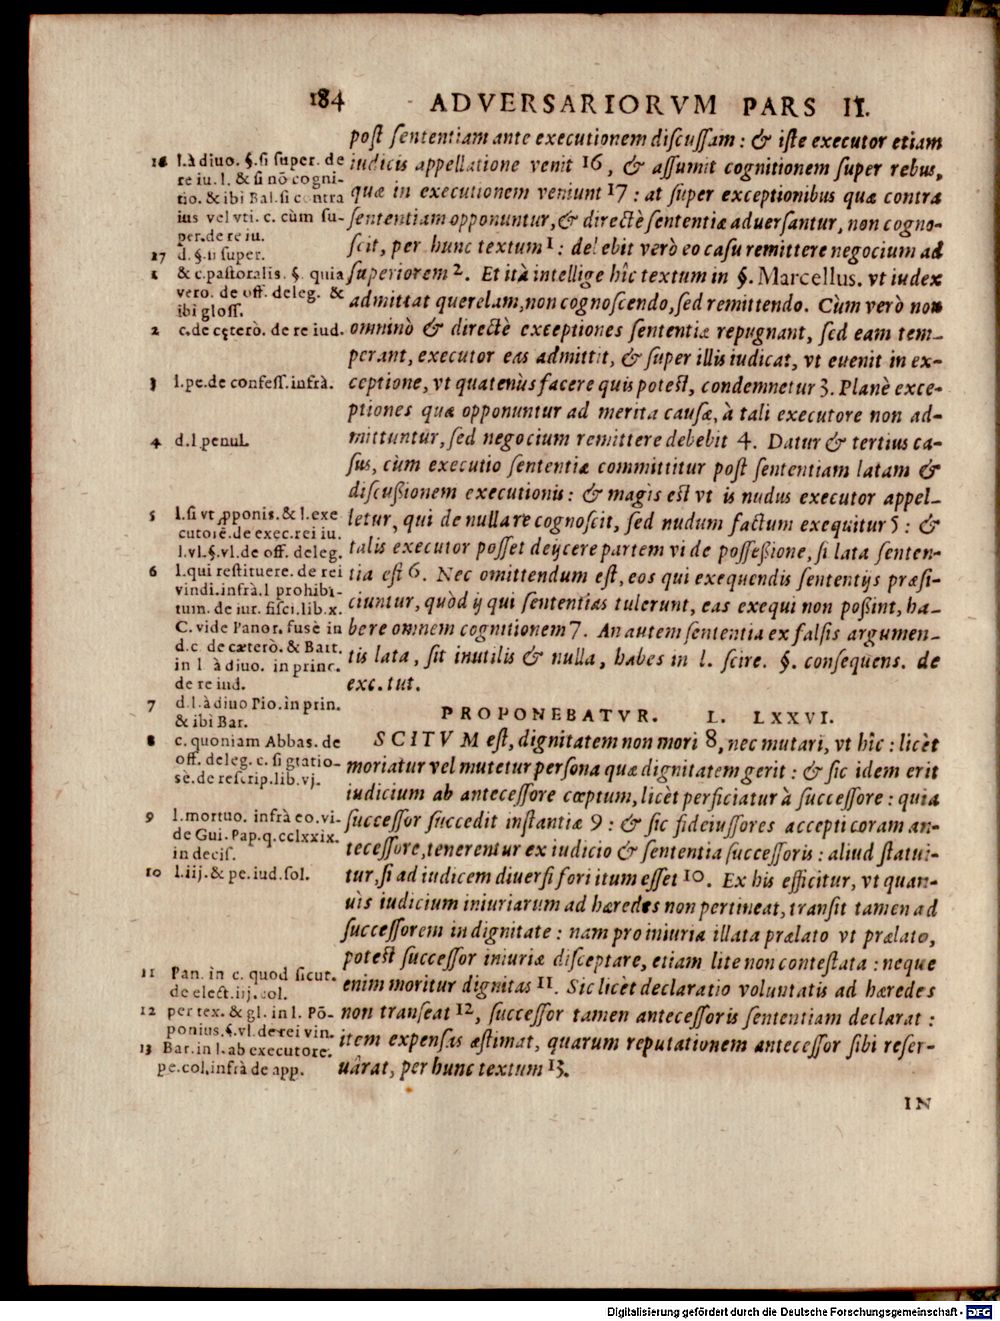 184 ADVERSARIORVM PARS II.
post sententiam ante executionem discussam : & iste executor etiam
iudicis appellatione venit 16, & assumit cognitionem super rebus,
quæ in executionem veniunt 17 : at super exceptionibus quæ contra
sententiam opponuntur, & directè sententiæ aduersantur, non cogno-
scit, per hunc textum 1 : debebit verò eo casu remittere negocium ad
superiorem 2. Et ità intellige hîc textum in §. Marcellus. vt iudex
admittat querelam, non cognoscendo, sed remittendo. Cùm verò non
omninò & directè exceptiones sententiæ repugnant, sed eam tem-
perant, executor eas admittit, & super illis iudicat, vt euenit in ex-
ceptione, vt quatenùs facere quis potest, condemnetur 3. Planè exce-
ptiones quæ opponuntur ad merita causæ, à tali executore non ad-
mittuntur, sed negocium remittere debebit 4. Datur & tertius ca-
sus, cùm executio sententiæ committitur post sententiam latam &
discußionem executionis : & magis est vt is nudus executor appel-
letur, qui de nulla re cognoscit, sed nudum factum exequitur 5 : &
talis executor posset deijcere partem vi de possessßione, si lata senten-
tia est 6. Nec omittendum est, eos qui exequendis sententijs præfi-
ciuntur, quòd ij qui sententias tulerunt, eas exequi non poßint, ha-
bere omnem cognitionem 7. An autem sententia ex falsis argumen-
tis lata, sit inutilis & nulla, habes in l. scire. §. consequens. de
exc. tut.
PROPONEBATVR. L. LXXVI.
SCITVM est, dignitatem non mori 8, nec mutari, vt hîc : licèt
moriatur vel mutetur persona quæ dignitatem gerit : & sic idem erit
iudicium ab antecessore cœptum, licèt perficiatur à successore : quia
successor succedit instantiæ 9 : & sic fideiussores accepti coram an-
tecessore, tenerentur ex iudicio & sententia successoris : aliud statui-
tur, si ad iudicem diuersi fori itum esset 10. Ex his efficitur, vt quan-
uis iudicium iniuriarum ad hæredes non pertineat, transit tamen ad
successorem in dignitate : nam pro iniuria illata prælato vt prælato,
potest successor iniuriæ disceptare, etiam lite non contestata : neque
enim moritur dignitas 11. Sic licèt declaratio voluntatis ad hæredes
non transeat 12, successor tamen antecessoris sententiam declarat :
item expensas æstimat, quarum reputationem antecessor sibi reser-
uârat, per hunc textum 13.
IN
16 l. à diuo. §. si super. de
re iu. l. & si nō cogni-
tio. & ibi Bal. si contra
ius vel vti. c. cùm su-
per. de re iu.
17 d. §. si super.
1 & c. pastoralis. §. quia
vero. de off. deleg. &
ibi gloss.
2 c. de cęterò. de re iud.
3 l. pe. de confess. infrà.
4 d. l penul.
5 l. si vt ꝓponis. & l. exe
cutorē. de exec. rei iu.
l. vl. §. vl. de off. deleg.
6 l. qui restituere. de rei
vindi. infrà. l prohibi-
tum. de iur. fisci. lib. x.
C. vide Panor. fusè in
d. c. de cæterò. & Bart.
in l à diuo. in princ.
de re iud.
7 d. l. à diuo Pio. in prin.
& ibi Bar.
8 c. quoniam Abbas. de
off. deleg. c. si gratio-
sè. de rescrip. lib. vj.
9 l. mortuo. infrà eo. vi-
de Gui. Pap. q. cclxxix.
in decis.
10 l. iij. & pe. iud. sol.
11 Pan. in c. quod sicut.
de elect. iij. col.
12 per tex. & gl. in l. Pō-
ponius. §. vl. de rei vin.
13 Bar. in l. ab executore.
pe. col. infrà de app.
Digitalisierung gefördert durch die Deutsche Forschungsgemeinschaft - DFG